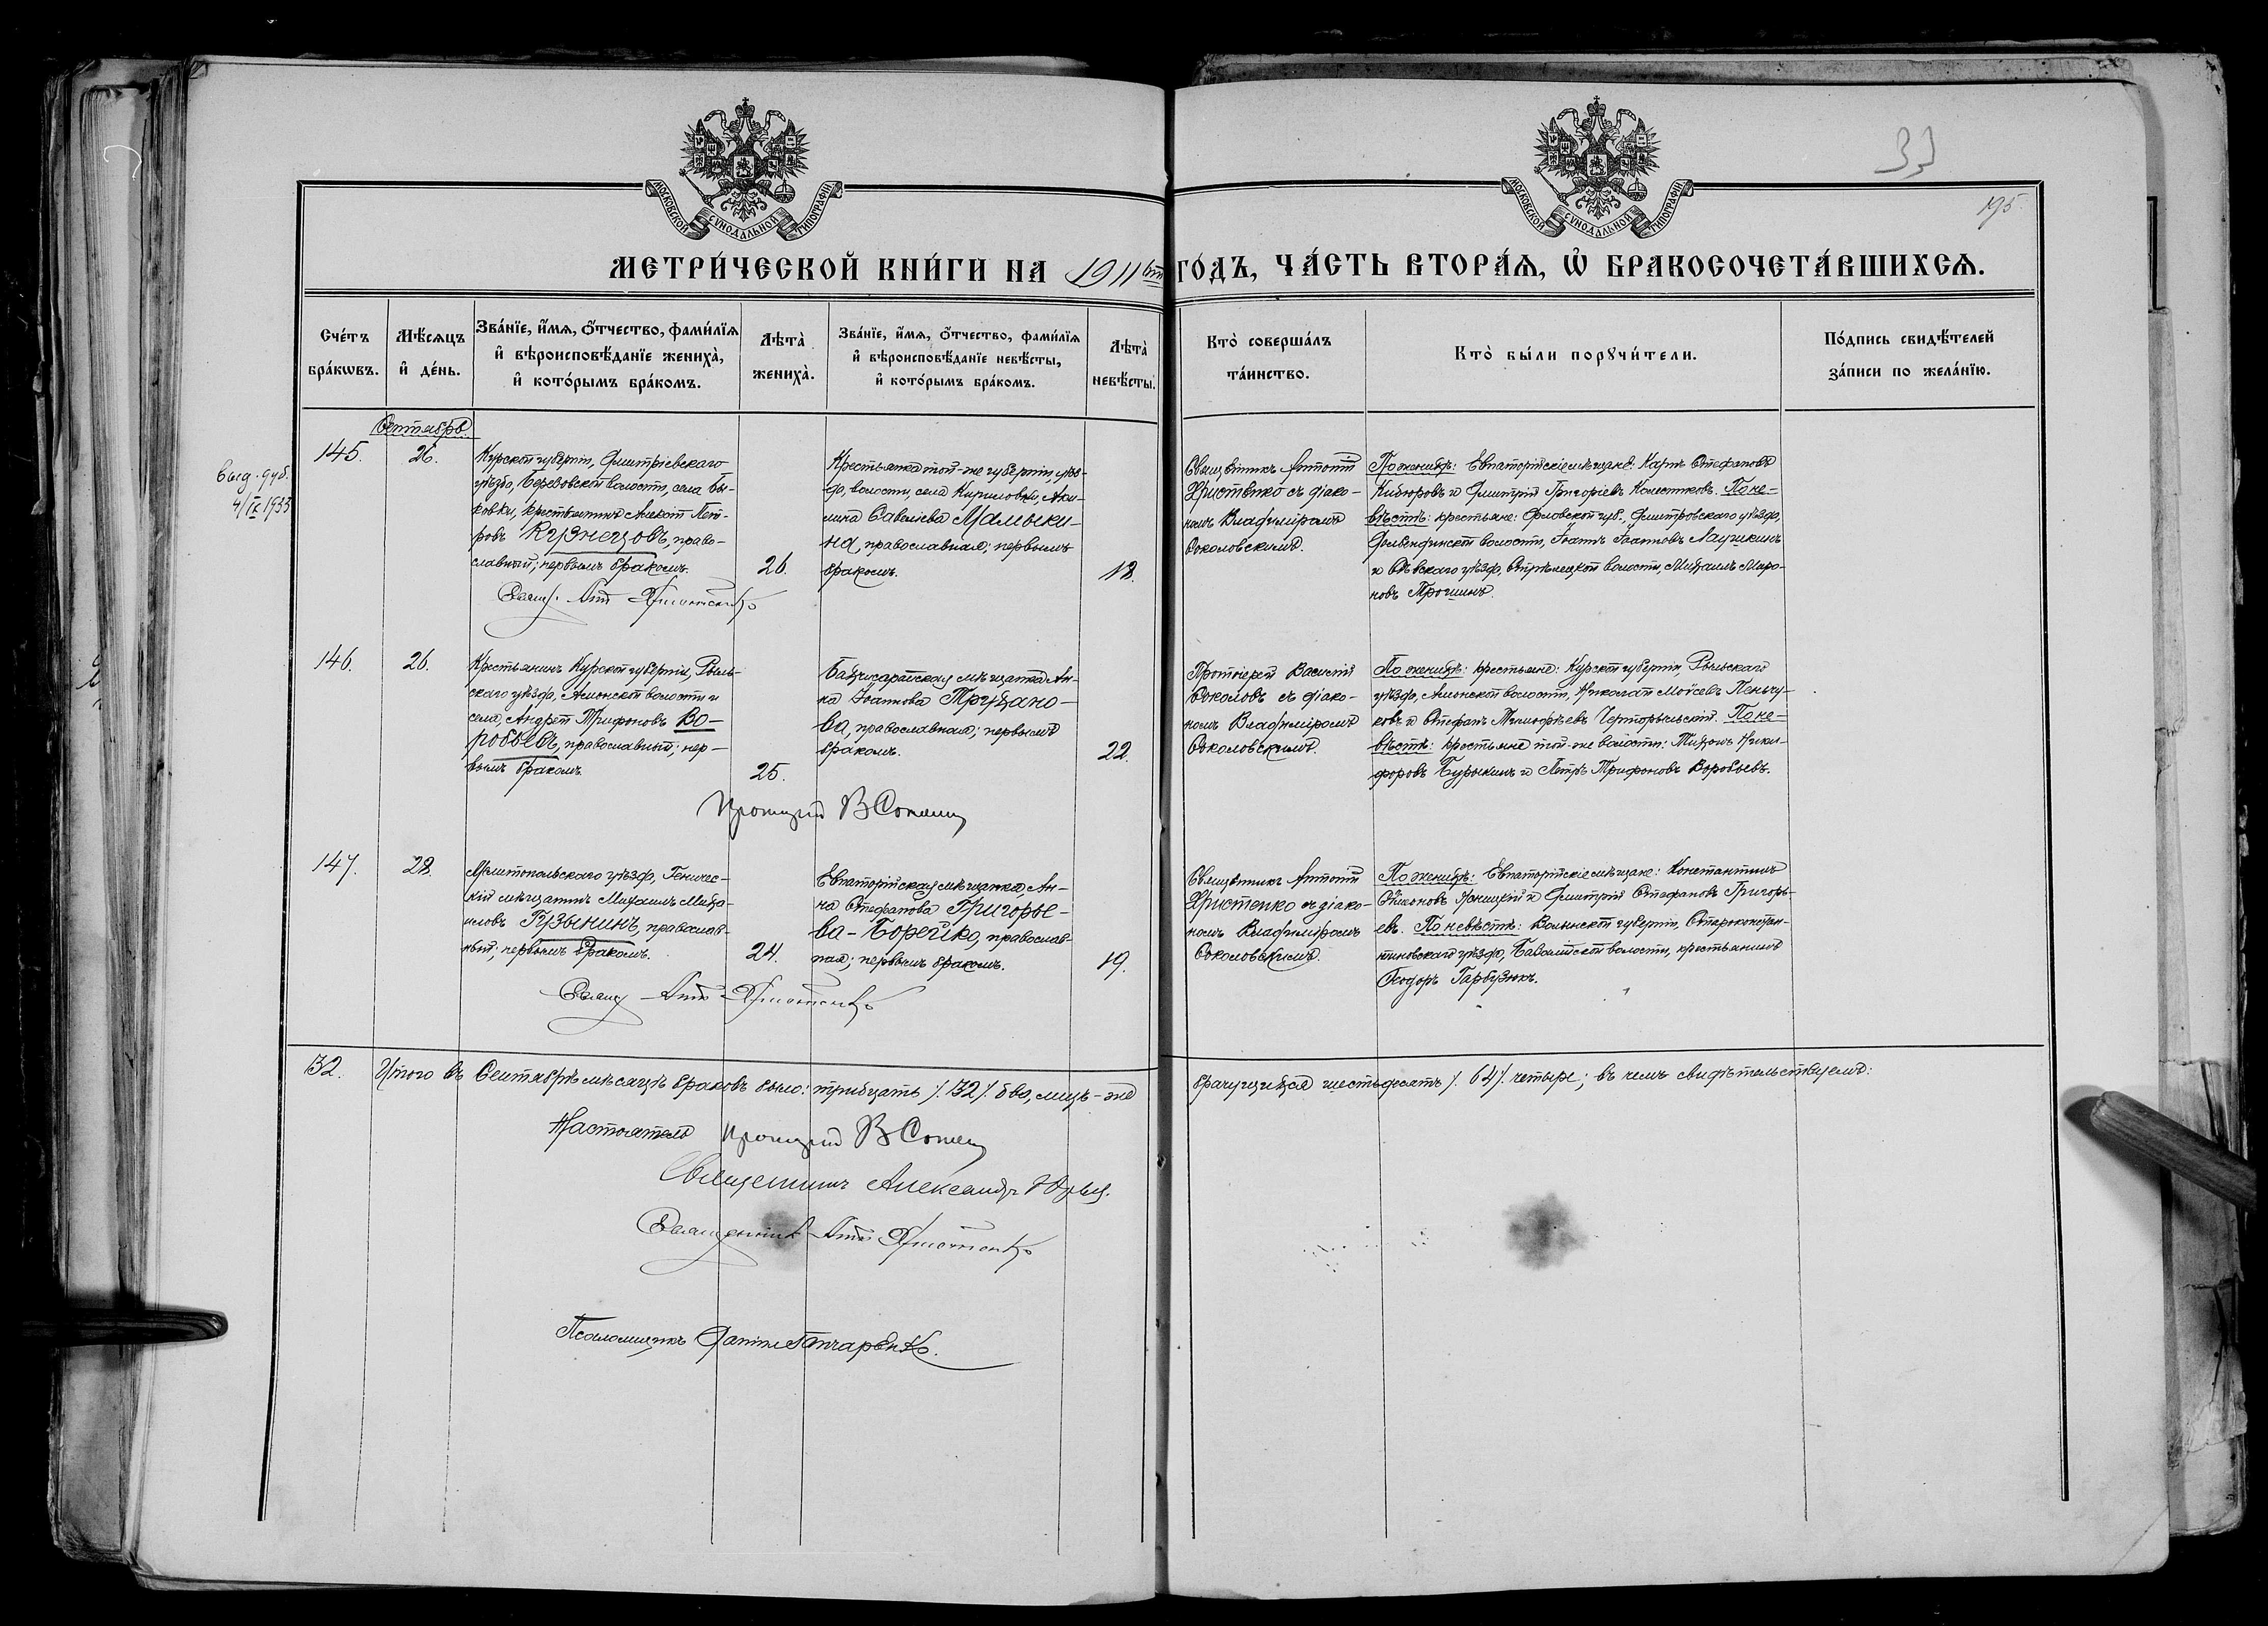 33
195.
МОСКОВСКОЙ СѴНОДАЛЬНОЙ ТИПОГРАФІИ
МОСКОВСКОЙ СѴНОДАЛЬНОЙ ТИПОГРАФІИ
МЕТРИ́ЧЕСКОЙ КНИ́ГИ НА 1911 ГО́ДЪ, ЧА́СТЬ ВТОРА́Ѧ, Ѡ҆ БРАКОСОЧЕТА́ВШИХСѦ.
Сче́тъ бра́кѡвъ.
Мѣ́сѧцъ и҆ де́нь.
Зва́нїе, и҆́мѧ, ѻ҆́тчество, фами́лїѧ и҆ вѣроисповѣ́данїе жениха̀, и҆ кото́рымъ бра́комъ.
Лѣта̀ жениха̀.
Зва́нїе, и҆́мѧ, ѻ҆́тчество, фами́лїѧ и҆ вѣроисповѣ́данїе невѣ́сты, и҆ кото́рымъ бра́комъ.
Лѣта̀ невѣ́сты.
Кто̀ соверша́лъ та́инство.
Кто̀ бы́ли порꙋчи́тели.
По́дпись свидѣ́телей за́писи по жела́нїю.
Сентябрь
выд. дуб.
4/IX 1933
145.
26.
Курской губерніи, Дмитріевскаго
уѣзда, Березовской волости, села Бы-
ковки, крестьянинъ Алексій Пет-
ровъ Кузнецовъ, право-
славный; первымъ бракомъ.
26.
Крестьянка той-же губерніи, уѣз-
да, волости, села Кириловки, Аки-
лина Савеліева Мамыки-
на, православная; первымъ
бракомъ.
18.
Священникъ Антоній
Христенко съ діако-
номъ Владиміромъ
Соколовскимъ.
По женихѣ: Евпаторійскіе мѣщане: Карпъ Стефановъ
и Дмитрій Григоріевъ Колесниковъ. По не-
вѣстѣ: крестьяне: Орловской губ., Дмитровскаго уѣзда,
волости, Іоаннъ Іоанновъ Лаушкинъ
и Сѣвскаго уѣзда, Стрѣлецкой волости, Михаилъ Миро-
новъ Трошинъ.
Свящ. Ант Христенко
146.
26.
Крестьянинъ Курской губерніи, Рыль-
скаго уѣзда, Амонской волости и
села, Андрей Трифоновъ Во-
робьевъ, православный; пер-
вымъ бракомъ.
25.
Бахчисарайская мѣщанка Ан-
на Іоаннова Трухано-
ва, православная; первымъ
бракомъ.
22.
Протоіерей Василій
Соколовъ съ діако-
номъ Владиміромъ
Соколовскимъ.
По женихѣ: крестьяне: Курской губерніи, Рыльскаго
уѣзда, Амонской волости, Николай Моисеевъ Пеньчу-
ковъ и Стефанъ Тимофѣевъ По не-
вѣстѣ: крестьяне той-же волости: Тихонъ Ники-
форовъ Бурыкинъ и Петръ Трифоновъ Воробьевъ.
Протоіерей В Соколовъ
147.
28.
Мелитопольскаго уѣзда, Геничес-
кій мѣщанинъ Михаилъ Миха-
иловъ Гузынинъ, православ-
ный; первымъ бракомъ.
24.
Евпаторійская мѣщанка Ан-
на Стефанова Григорье-
ва-Борейко, православ-
ная; первымъ бракомъ.
19.
Священникъ Антоній
Христенко съ діако-
номъ Владиміромъ
Соколовскимъ.
По женихѣ: Евпаторійскіе мѣщане: Константинъ
и Дмитрій Стефановъ Григорь-
евъ. По невѣстѣ: Волынской губерніи, Староконстан-
тиновскаго уѣзда, волости, крестьянинъ
Ѳеодоръ Гарбузюкъ.
Свящ Ант Христенко
32.
Итого въ Сентябрѣ мѣсяцѣ браковъ было: тридцать /.32/. два, лицъ-же брачущихся шестьдесятъ /. 64/. четыре; въ чемъ свидѣтельствуемъ:
Настоятель Протоіерей В Соколовъ
Священникъ Александръ
Священникъ Ант Христенко
Псаломщикъ Гончаренко.